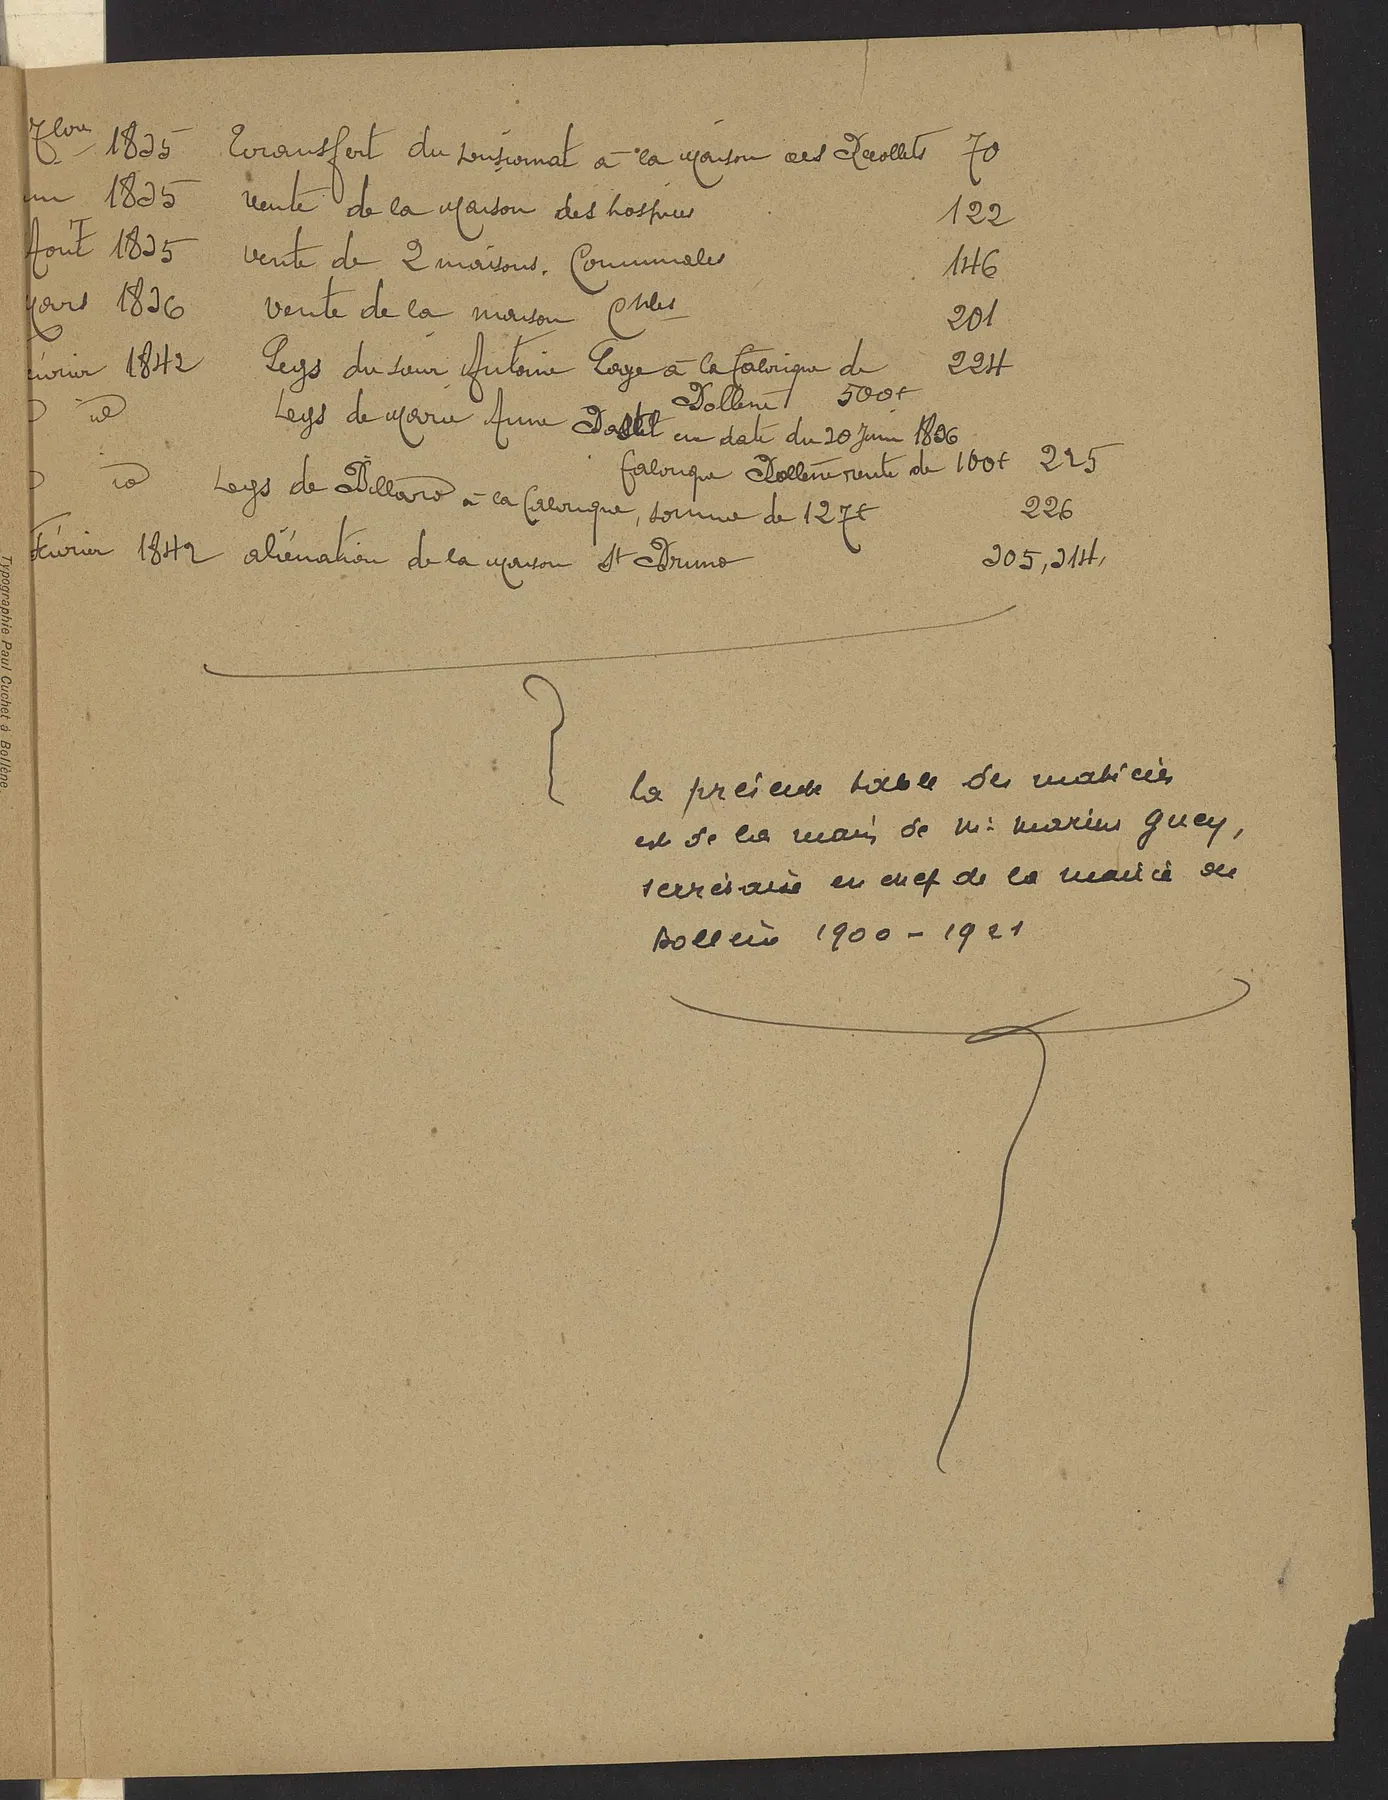 7bre 1835 Transfert du pensionnat à la maison des Recollets 70
1835 vente de la maison des hospices 122
Août 1835 vente de 2 maisons Communales 146
Mars 1836 vente de la maison Cnles 201
février 1842 Legs du sieur Antoine Lage à la fabrique de 224
Bollène 500f
id Legs de Marie Anne en date du 20 Juin 1836
fabrique Bollène rente de 100f 225
id Legs de Billard à la fabrique, somme de 127f 226
février 1842 aliénation de la maison St Bruno 205, 214,
La présente table des matières
est de la main de Mr Marius Guey,
secrétaire en chef de la mairie de
Bollène 1900 - 1921
Typographie Paul Cuchet à Bollène.